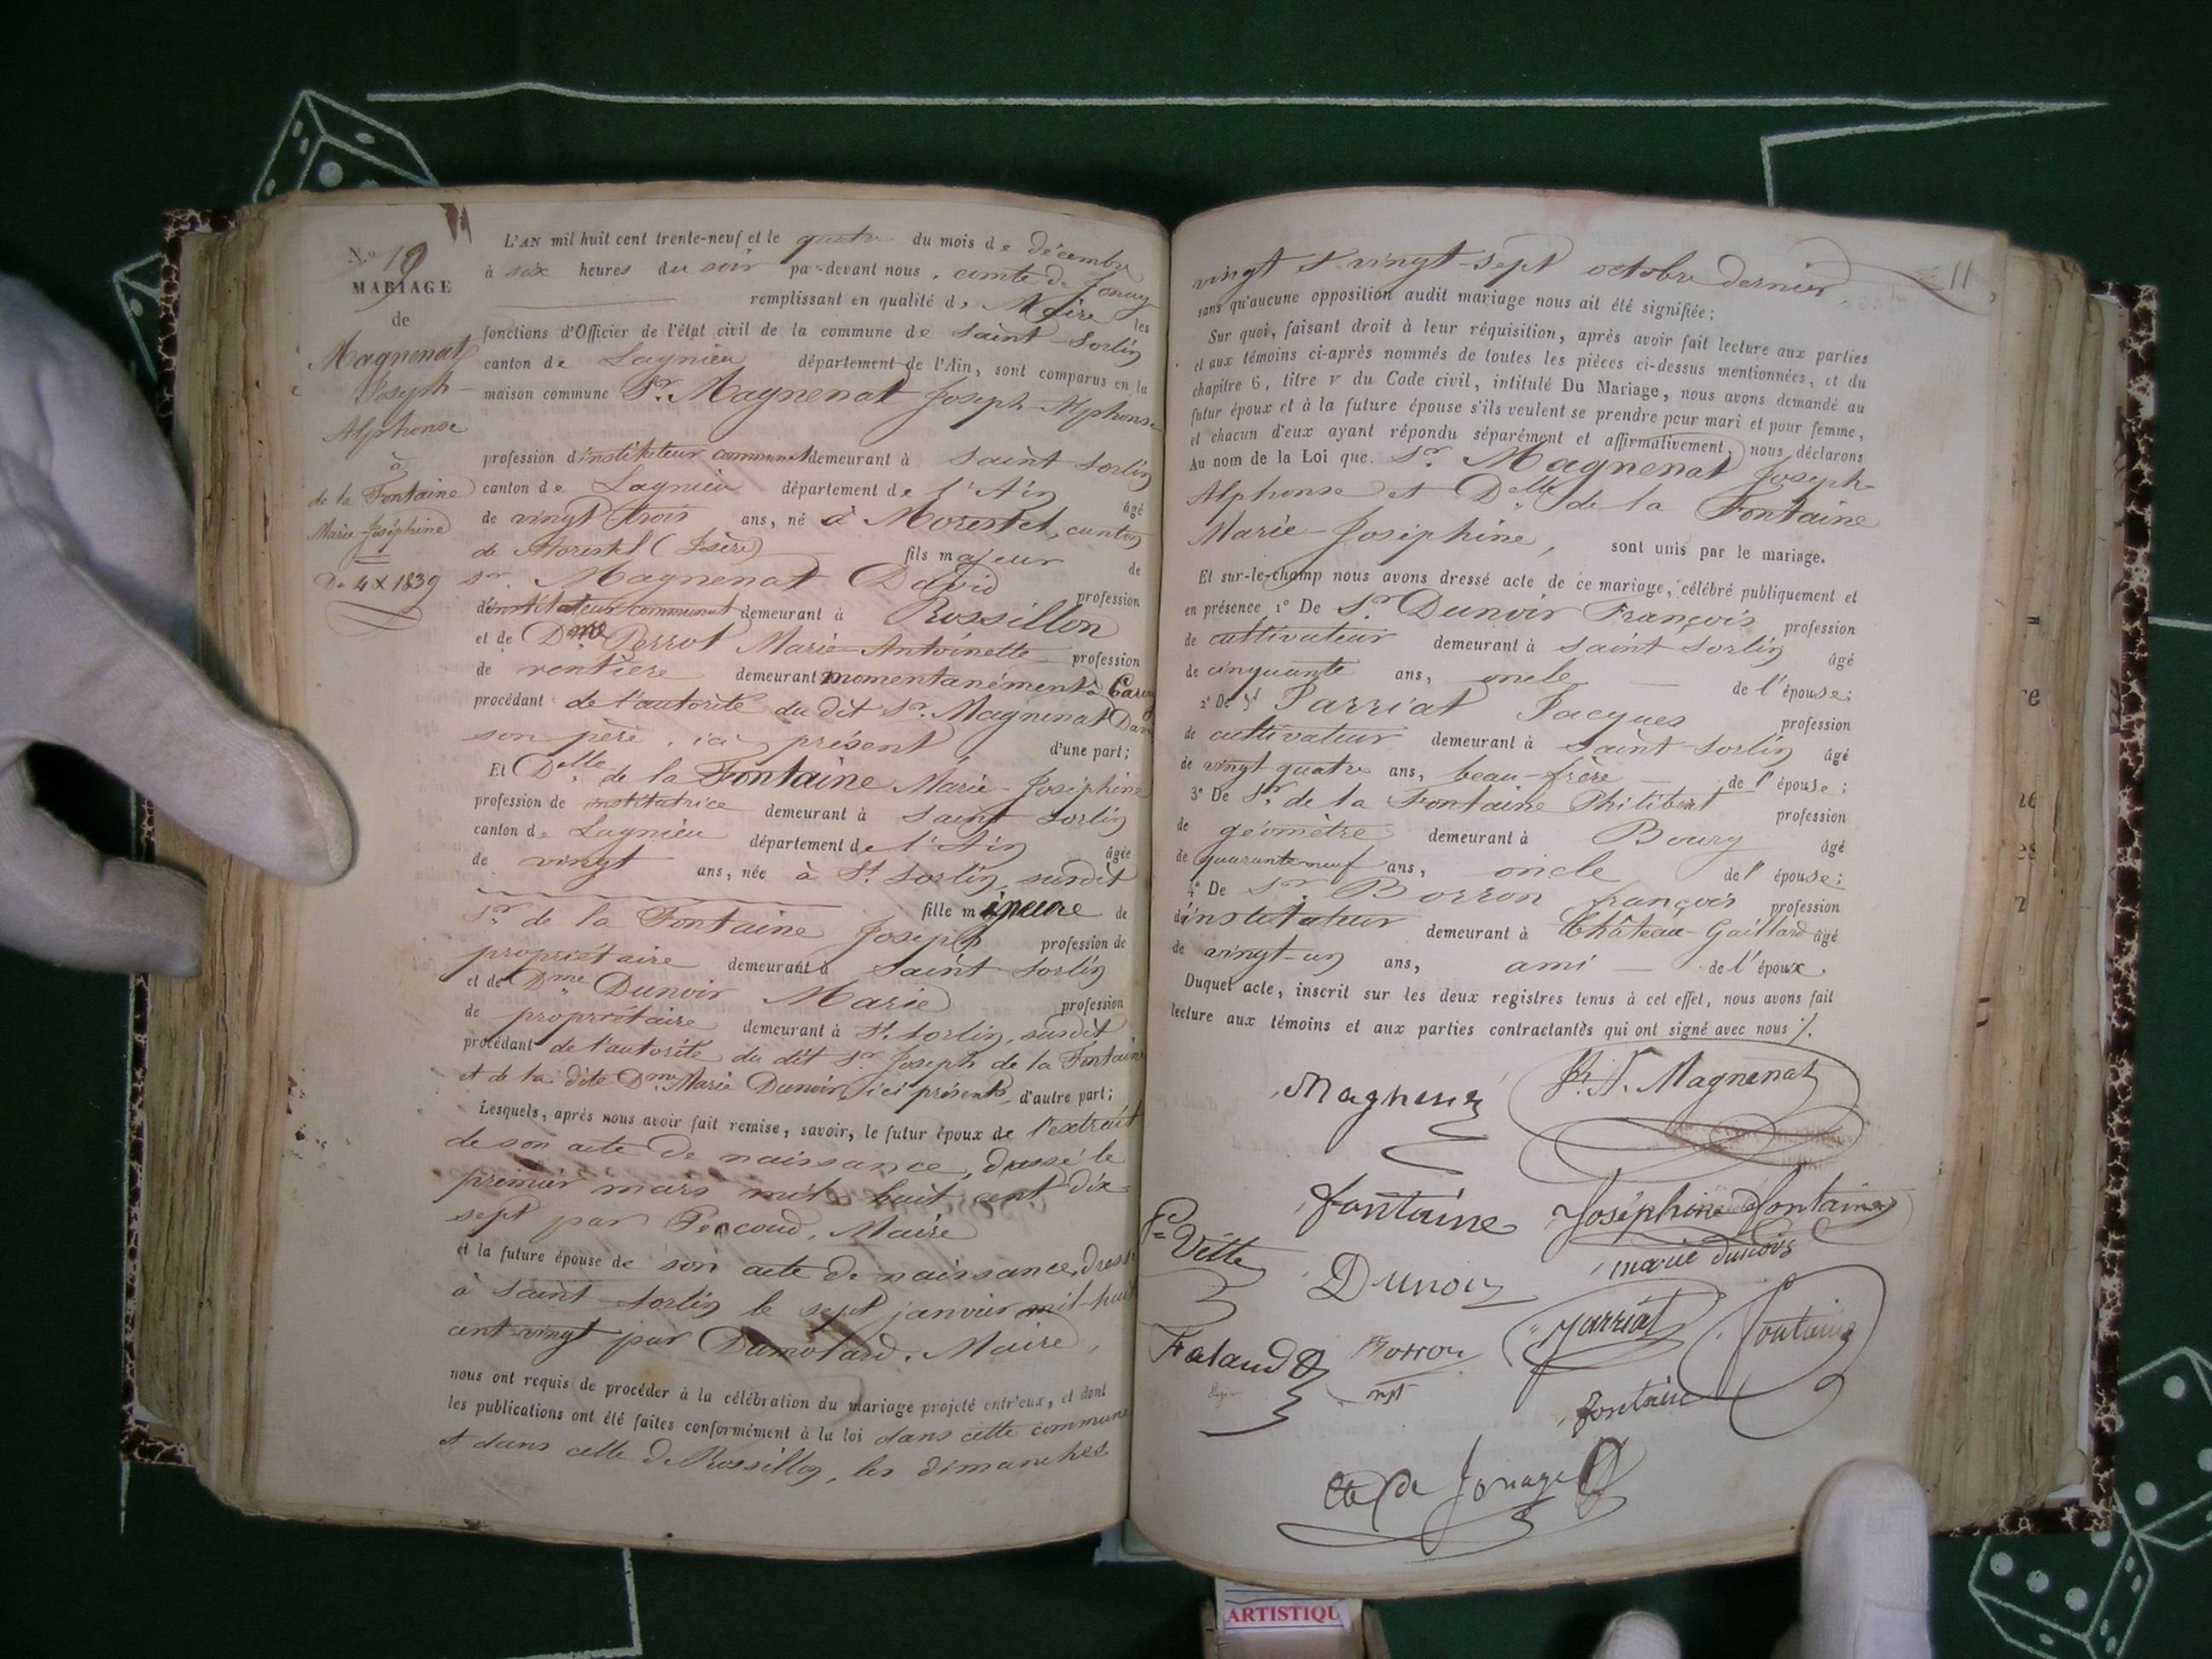 N.º 19
MARIAGE
de
Magnenat
Joseph-
Alphonse
à
de la Fontaine
Marie-Joséphine
Du 4 X 1839
L'AN mil huit cent trente-neuf et le quatre du mois de décembre
à six heures du soir par-devant nous, comte de Jonage
remplissant en qualité de Maire les
fonctions d'Officier de l'état civil de la commune de Saint-Sorlin
canton de Lagnieu département de l'Ain, sont comparus en la
maison commune Sr. Magnenat Joseph-Alphonse
profession d'instituteur communal demeurant à Saint Sorlin
canton de Lagnieu département de l'Ain âgé
de vingt-trois ans, né à Morestel, canton
de Morestel (Isère) fils majeur de
sr. Magnenat David profession
d'instituteur communal demeurant à Rossillon
et de Dme Perrot Marie-Antoinette profession
de rentière demeurant momentanément à
procédant de l'autorité du dit Sr. Magnenat David
son père, ici présent d'une part;
Et Delle de la Fontaine Marie-Joséphine
profession de institutrice demeurant à Saint Sorlin
canton de Lagnieu département de l'Ain âgée
de vingt ans, née à St. Sorlin, susdit
fille mineure de
Sr de la Fontaine Joseph profession de
propriétaire demeurant à Saint-Sorlin
et de Dme Dunoir Marie profession
de propriétaire demeurant à St. Sorlin, susdit
procédant de l'autorité du dit Sr. Joseph de la Fontaine
et de la dite Dme Marie Dunoir, ici présents, d'autre part;
Lesquels, après nous avoir fait remise, savoir, le futur époux de l'extrait
de son acte de naissance, dressé le
premier mars mil huit cent dix-
sept par Percoud, Maire
et la future épouse de son acte de naissance, dressé
à Saint-Sorlin le sept janvier mil-huit
cent-vingt par Damotard, Maire,
nous ont requis de procéder à la célébration du mariage projeté entr'eux, et dont
les publications ont été faites conformément à la loi dans cette commune
et dans celle de Rossillon, les dimanches
11
vingt et vingt-sept octobre dernier
sans qu'aucune opposition audit mariage nous ait été signifiée;
Sur quoi, faisant droit à leur réquisition, après avoir fait lecture aux parties
et aux témoins ci-après nommés de toutes les pièces ci-dessus mentionnées, et du
chapitre 6, titre V du Code civil, intitulé Du Mariage, nous avons demandé au
futur époux et à la future épouse s'ils veulent se prendre pour mari et pour femme,
et chacun d'eux ayant répondu séparément et affirmativement, nous déclarons
Au nom de la Loi que Sr. Magnenat Joseph-
Alphonse et Delle de la Fontaine
Marie-Joséphine, sont unis par le mariage.
Et sur-le-champ nous avons dressé acte de ce mariage, célébré publiquement et
en présence 1º De Sr Dunoir François profession
de cultivateur demeurant à Saint-Sorlin âgé
de cinquante ans, oncle de l'épouse;
2º De Sr Jarriat Jacques profession
de cultivateur demeurant à Saint-Sorlin âgé
de vingt quatre ans, beau-frère de l'épouse;
3º De Sr. de la Fontaine Philibert profession
de géomètre demeurant à Bourg âgé
de quarante neuf ans, oncle de l'épouse;
4º De Sr. Borron françois profession
d'instituteur demeurant à Château-Gaillard âgé
de vingt-un ans, ami de l'époux.
Duquel acte, inscrit sur les deux registres tenus à cet effet, nous avons fait
lecture aux témoins et aux parties contractantes qui ont signé avec nous ./.
Magnenat J. A. Magnenat
fontaine Joséphine de la fontaine
Vette Dunoir marie dunoir
Falaud Borron Jarriat fontaine
inst
fontaine
Cte de Jonage
ARTISTIQU